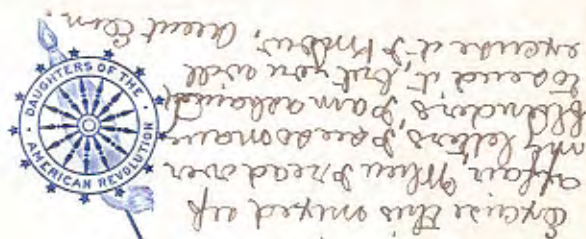 DAUGHTERS OF THE
AMERICAN REVOLUTION
Excuse this mixed up
affair When I read over
my letters, I see so many
blunders, I am ashamed
to send it, but you will
excuse it I know, Aunt Em.